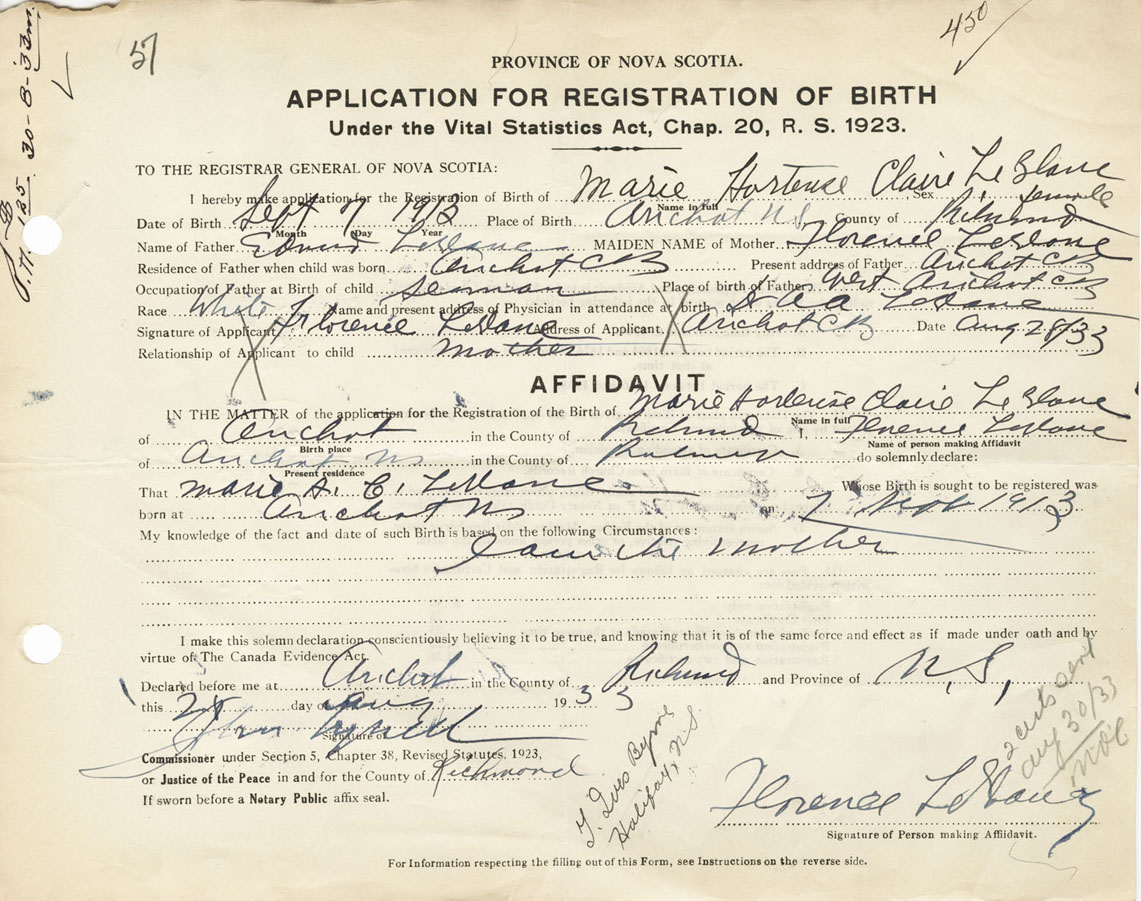 57
450
P.H. 125. 30-8-33 m.
PROVINCE OF NOVA SCOTIA.
APPLICATION FOR REGISTRATION OF BIRTH
Under the Vital Statistics Act, Chap. 20, R. S. 1923.
TO THE REGISTRAR GENERAL OF NOVA SCOTIA:
I hereby make application for the Registration of Birth of Marie Hortense Claire LeBlanc Sex female
Name in full
Date of Birth Sept 7 1913 Place of Birth Arichat NS County of Richmond
Month Day Year
Name of Father LeBlanc MAIDEN NAME of Mother Florence LeBlanc
Residence of Father when child was born Arichat CB Present address of Father Arichat CB
Occupation of Father at Birth of child Seaman Place of birth of Father West Arichat CB
Race White Fr Name and present address of Physician in attendance at birth Dr A A LeBlanc
Signature of Applicant Florence LeBlanc Address of Applicant Arichat CB Date Aug 28/33
Relationship of Applicant to child Mother
AFFIDAVIT
IN THE MATTER of the application for the Registration of the Birth of Marie Hortense Claire LeBlanc
Name in full
of Arichat in the County of Richmond I, Florence LeBlanc
Birth place Name of person making Affidavit
of Arichat NS in the County of Richmond do solemnly declare:
Present residence
That Marie H. C. LeBlanc Whose Birth is sought to be registered was
born at Arichat NS on 7 1913
My knowledge of the fact and date of such Birth is based on the following Circumstances:
I am the Mother
I make this solemn declaration conscientiously believing it to be true, and knowing that it is of the same force and effect as if made under oath and by
virtue of The Canada Evidence Act.
Declared before me at Arichat in the County of Richmond and Province of N.S,
this 28 day of Aug 1933
John
Signature of
Commissioner under Section 5, Chapter 38, Revised Statutes, 1923,
or Justice of the Peace in and for the County of Richmond
If sworn before a Notary Public affix seal.
Byrne
Halifax, N.S.
2 certs sent
Aug 30/33
Florence LeBlanc
Signature of Person making Affidavit.
For Information respecting the filling out of this Form, see Instructions on the reverse side.